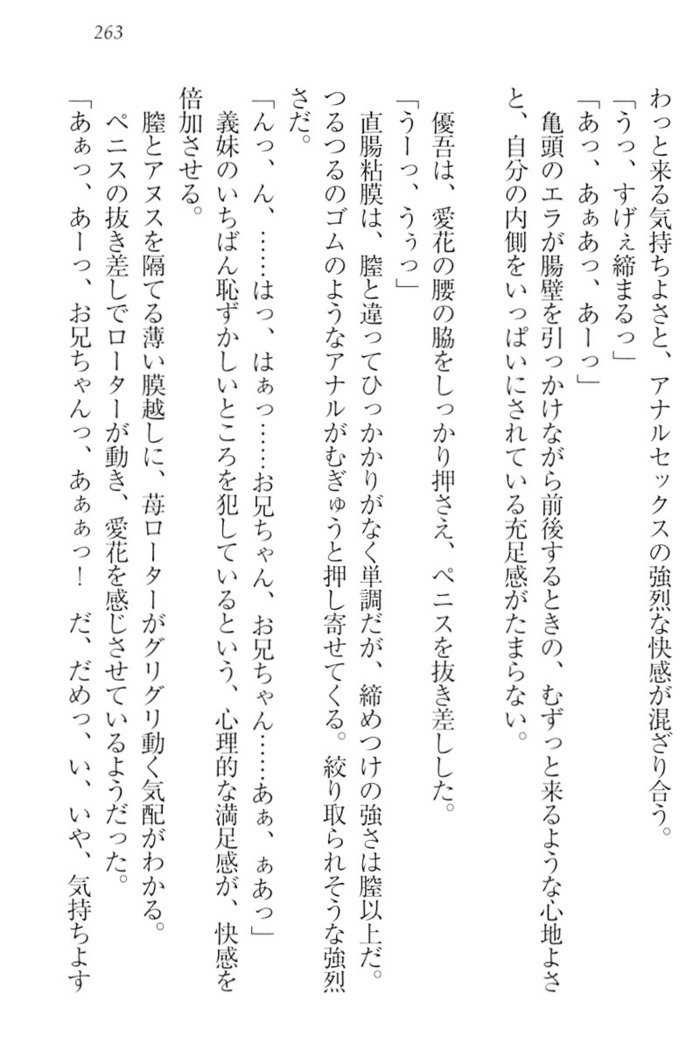 263
わっと来る気持ちよさと、アナルセックスの強烈な快感が混ざり合う。
「うっ、すげぇ締まるっ」
「あっ、あぁあっ、あーっ」
亀頭のエラが腸壁を引っかけながら前後するときの、むずっと来るような心地よさ
と、自分の内側をいっぱいにされている充足感がたまらない。
優吾は、愛花の腰の脇をしっかり押さえ、ペニスを抜き差しした。
「うーっ、うぅっ」
直腸粘膜は、膣と違ってひっかかりがなく単調だが、締めつけの強さは膣以上だ。
つるつるのゴムのようなアナルがむぎゅうと押し寄せてくる。絞り取られそうな強烈
さだ。
「んっ、ん、……はっ、はぁっ……お兄ちゃん、お兄ちゃん……あぁ、ぁあっ」
義妹のいちばん恥ずかしいところを犯しているという、心理的な満足感が、快感を
倍加させる。
膣とアヌスを隔てる薄い膜越しに、苺ローターがグリグリ動く気配がわかる。
ペニスの抜き差しでローターが動き、愛花を感じさせているようだった。
「あぁっ、あーっ、お兄ちゃんっ、あぁぁっ！　だ、だめっ、い、いや、気持ちよす